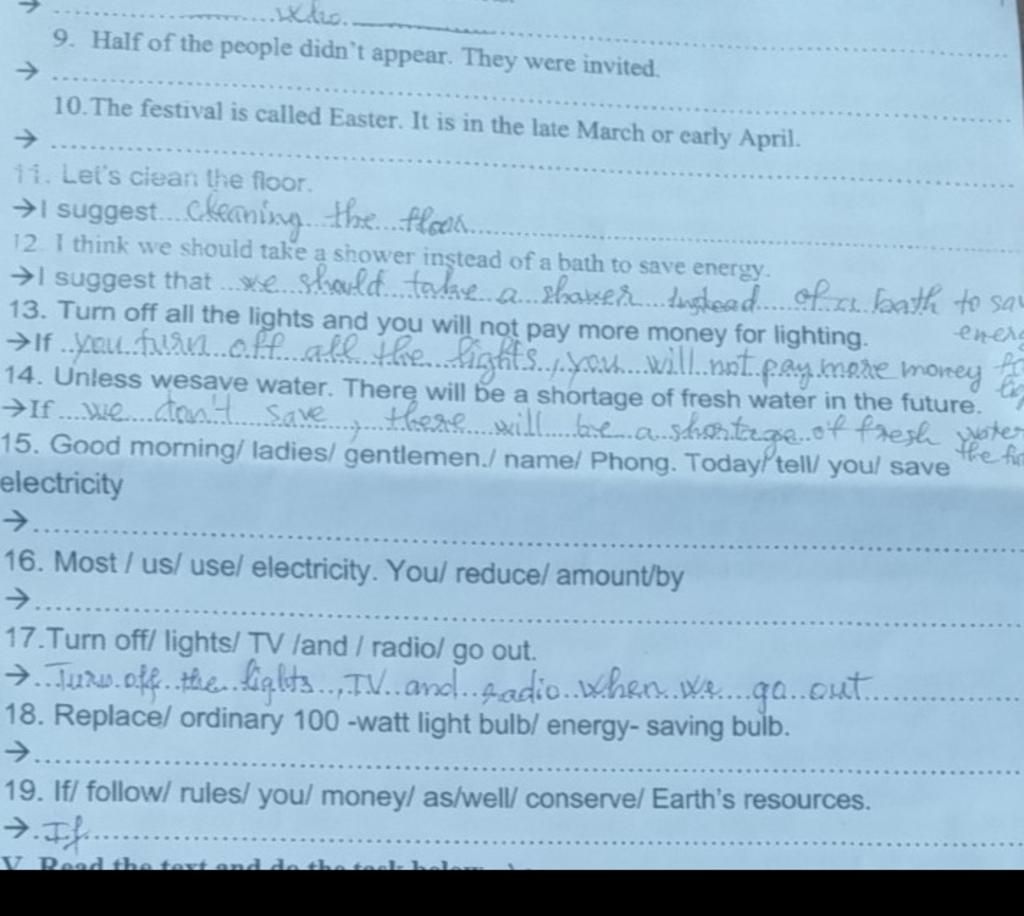 → ....................who.
9. Half of the people didn't appear. They were invited.
→
10.The festival is called Easter. It is in the late March or early April.
→
11. Let's clean the floor.
→I suggest cleaning the floor
12. I think we should take a shower instead of a bath to save energy.
→I suggest that we should take a shower instead of a bath to sav
energ
13. Turn off all the lights and you will not pay more money for lighting.
→If you turn off all the lights, you will not pay more money
14. Unless wesave water. There will be a shortage of fresh water in the future.
→If we don't save, there will be a shortage of fresh water
the fu
15. Good morning/ ladies/ gentlemen./ name/ Phong. Today/ tell/ you/ save
electricity
→
16. Most / us/ use/ electricity. You/ reduce/ amount/by
→
17.Turn off/ lights/ TV /and / radio/ go out.
→ Turn off the lights, TV and radio when we go out
18. Replace/ ordinary 100 -watt light bulb/ energy- saving bulb.
→
19. If/ follow/ rules/ you/ money/ as/well/ conserve/ Earth's resources.
→ If
V Read the text and do the task below